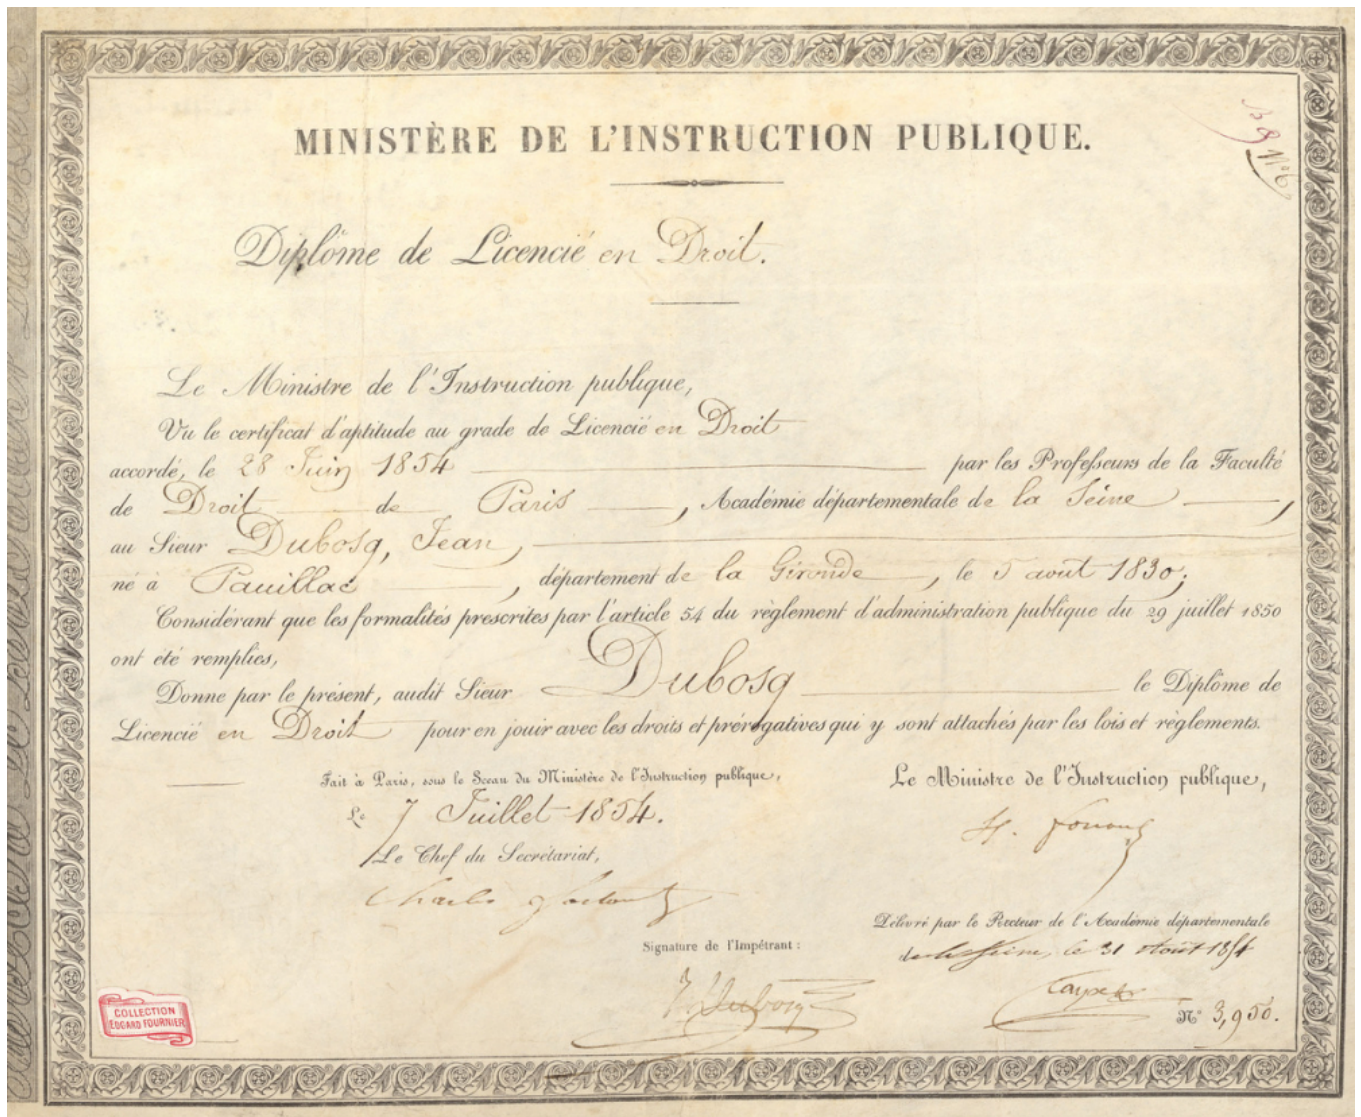 MINISTÈRE DE L'INSTRUCTION PUBLIQUE.
N° 6
Diplôme de Licencié en Droit.
Le Ministre de l'Instruction publique,
Vu le certificat d'aptitude au grade de Licencié en Droit
accordé, le 28 Juin 1854 par les Professeurs de la Faculté
de Droit de Paris, Académie départementale de la Seine,
au Sieur Dubosq, Jean,
né à Pauillac, département de la Gironde, le 5 août 1830;
Considérant que les formalités prescrites par l'article 54 du règlement d'administration publique du 29 juillet 1850
ont été remplies,
Donne par le présent, audit Sieur Dubosq le Diplôme de
Licencié en Droit pour en jouir avec les droits et prérogatives qui y sont attachés par les lois et règlements.
Fait à Paris, sous le Sceau du Ministère de l'Instruction publique,
Le 7 Juillet 1854.
Le Chef du Secrétariat,
Charles
Le Ministre de l'Instruction publique,
H. Fortoul
Délivré par le Recteur de l'Académie départementale
de la Seine, le 31 Août 1854
N° 3,950.
Signature de l'Impétrant :
J. Dubosq
COLLECTION
EDGARD FOURNIER